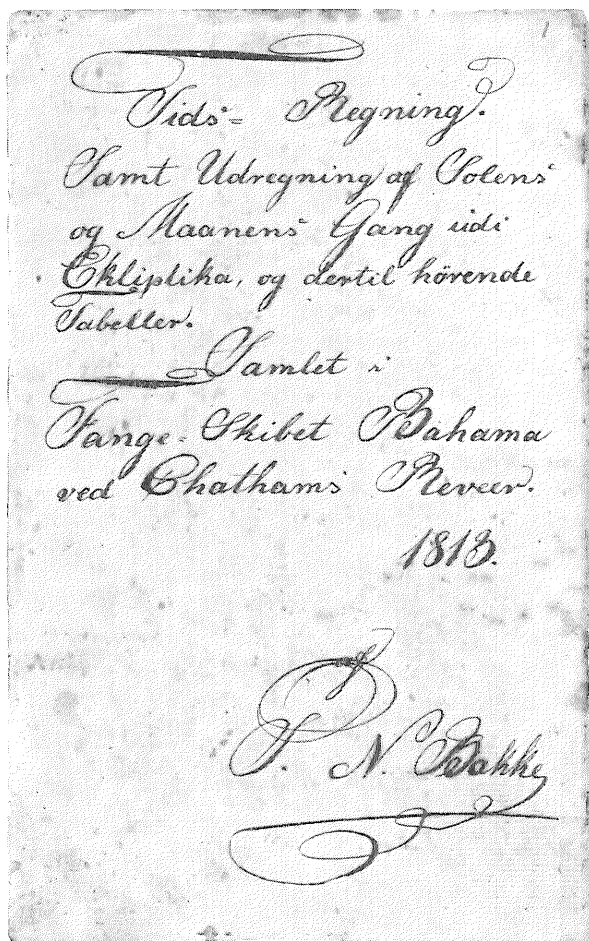 1
Tids= Regning.
Samt Udregning af Solens
og Maanens Gang udi
Ekliptika, og dertil hörende
Tabeller.
Samlet i
Fange-Skibet Bahama
ved Chathams Reveer.
1813.
af
S. N. Bakke